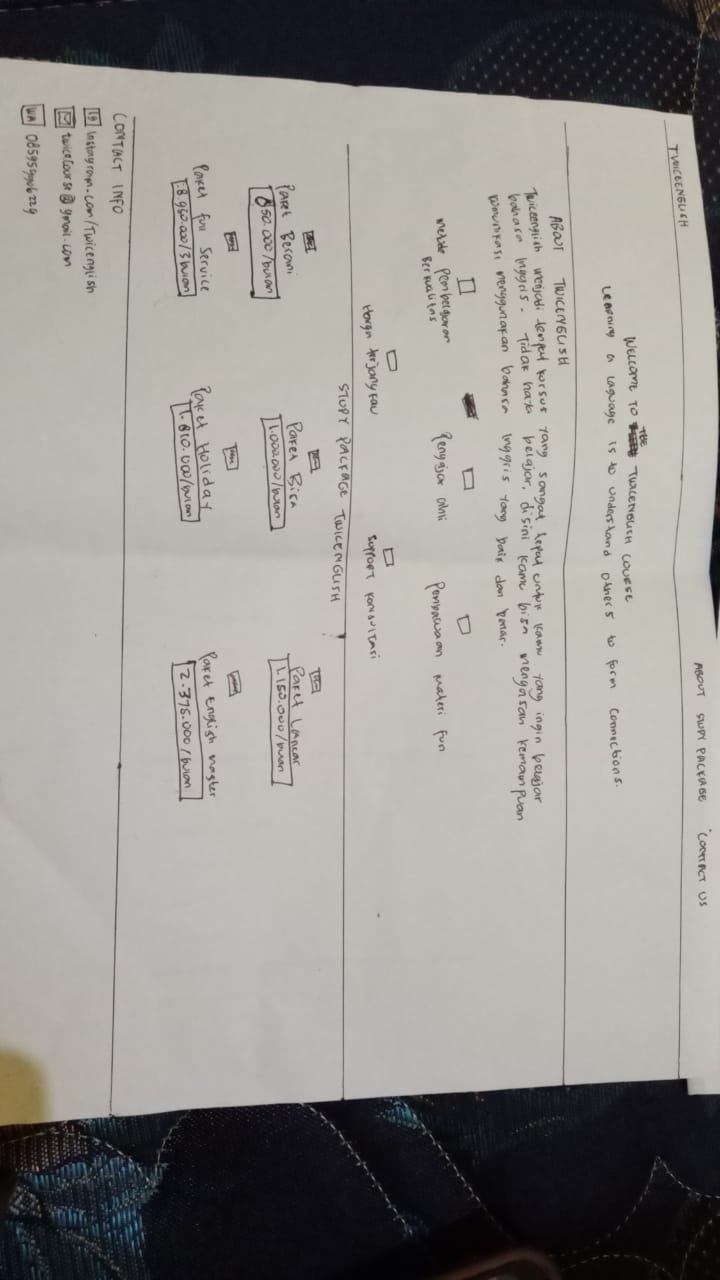 TWICEENGLISH
ABOUT STUDY PACKAGE CONTACT US
WELCOME TO THE TWICENGLISH COURSE
Learning a laguage is to understand others to form connections.
ABOUT TWICENGLISH
Twiceenglish menjadi tempat kursus yang sangat tepat untuk kamu yang ingin belajar
bahasa Inggris. Tidak haya belajar, disini kamu bisa mengasah kemampuan
komunikasi menggunakan bahasa Inggris yang baik dan benar.
Metode Pembelajaran Berkualitas
Pengajar ahli
Pembawaan materi fun
Harga terjangkau
Support Konsultasi
STUDY PACKAGE TWICENGLISH
Paket Berani
850.000/bulan
Paket Bisa
1.000.000/bulan
Paket Lancar
1.150.000/bulan
Paket full Service
8.950.000/3bulan
Paket Holiday
1.810.000/bulan
Paket English master
2.375.000/bulan
CONTACT INFO
IG Instagram.com/Twicenglish
twice.course@gmail.com
WA 085959906229